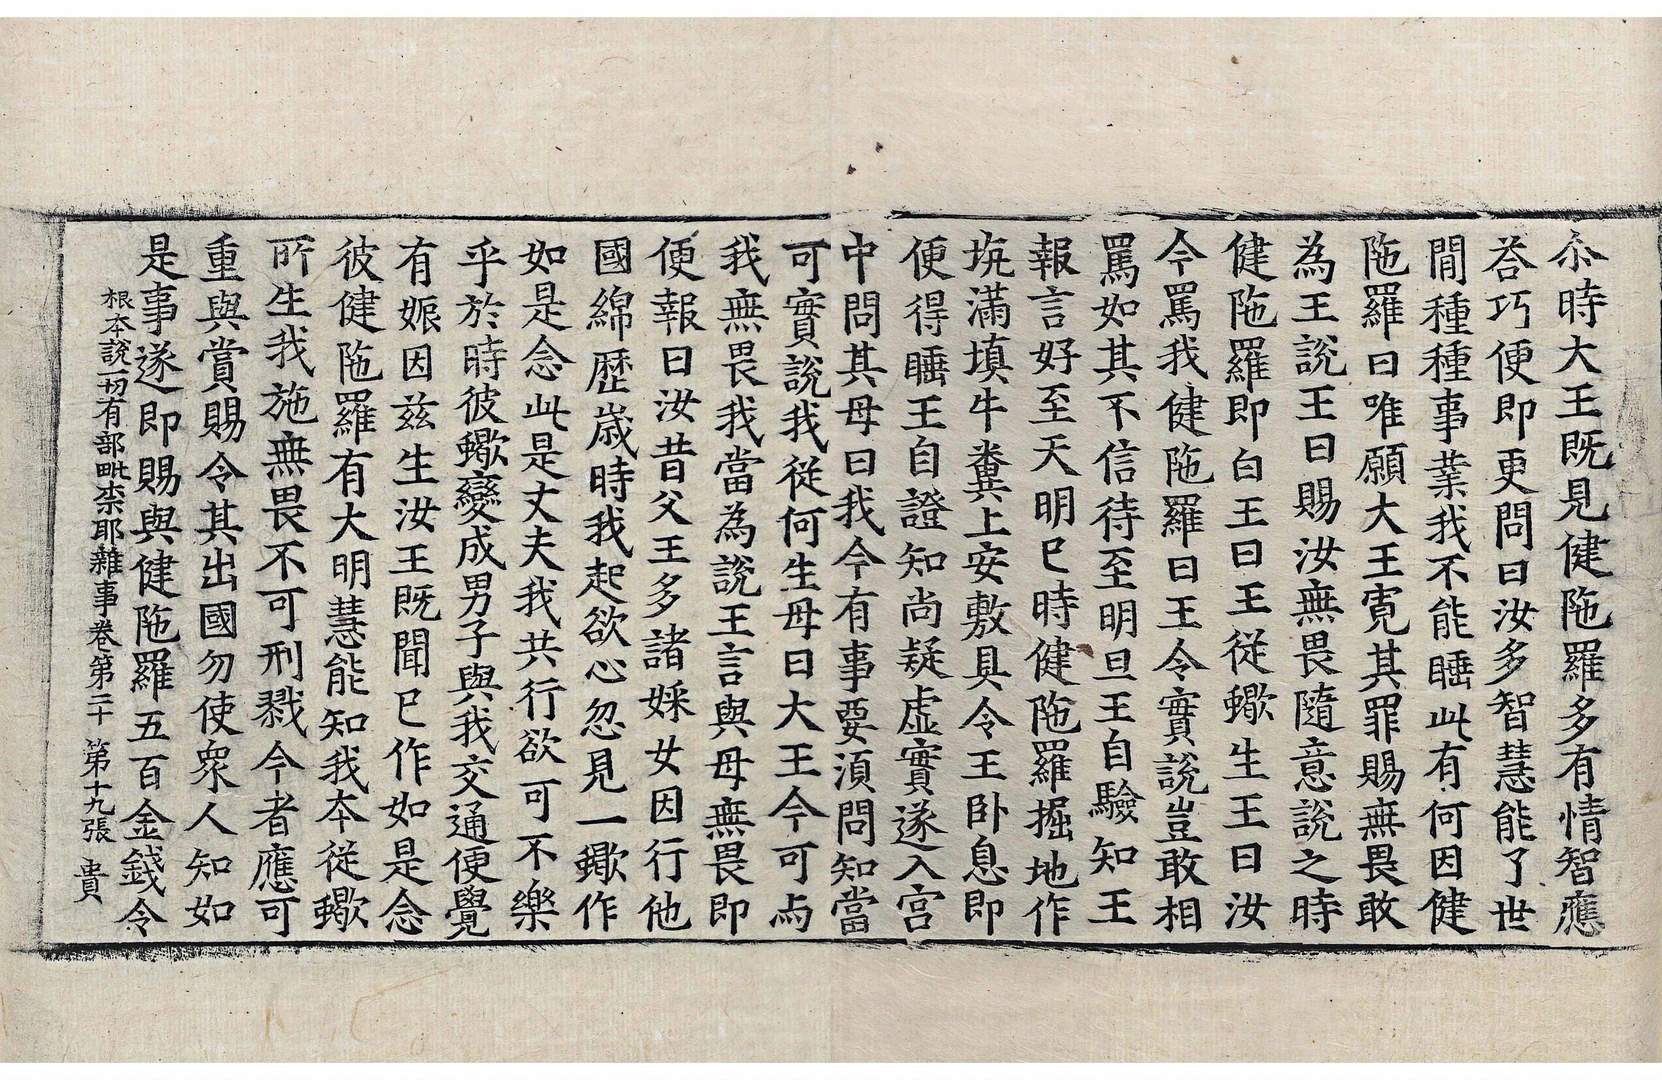 尒時大王既見健陁羅多有情智應
荅巧便即更問曰汝多智慧能了世
間種種事業我不能睡此有何因健
陁羅曰唯願大王寬其罪賜無畏敢
為王說王曰賜汝無畏隨意說之時
健陁羅即白王曰王從蠍生王曰汝
今罵我健陁羅曰王令實說豈敢相
罵如其不信待至明旦王自驗知王
報言好至天明已時健陁羅掘地作
坑滿填牛糞上安敷具令王卧息即
便得睡王自證知尚疑虛實遂入宮
中問其母曰我今有事要湏問知當
可實說我從何生母曰大王今可与
我無畏我當為說王言與母無畏即
便報曰汝昔父王多諸婇女因行他
國綿歷歲時我起欲心忽見一蠍作
如是念此是丈夫我共行欲可不樂
乎於時彼蠍變成男子與我交通便覺
有娠因茲生汝王既聞已作如是念
彼健陁羅有大明慧能知我本從蠍
所生我施無畏不可刑戮今者應可
重與賞賜令其出國勿使衆人知如
是事遂即賜與健陁羅五百金錢令
根本說一切有部毗柰耶雜事卷第二十 第十九張 貴